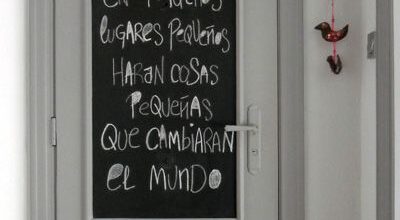 EN MUCHOS
LUGARES PEQUEÑOS
HARAN COSAS
PEQUEÑAS
QUE CAMBIARAN
EL MUNDO